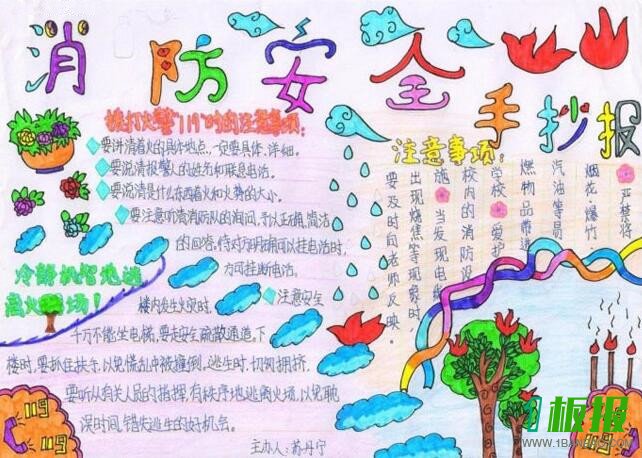 消防安全手抄报
拨打火警"119"时的注意事项:
要讲清着火的具体地点,一定要具体、详细。
要说清报警人的姓名和联系电话。
要说清是什么东西着火和火势的大小。
要注意听清消防队的询问,予以正确,简洁
的回答,待对方明确可以挂电话时,
方可挂断电话。
冷静机智地逃
离火现场!
注意安全
楼内发生火灾时,
千万不能坐电梯,要走安全疏散通道。下
楼时,要抓住扶手,以免慌乱中被撞倒。逃生时,切勿拥挤,
要听从有关人员的指挥,有秩序地逃离火场,以免耽
误时间,错失逃生的好机会。
主办人:苏丹宁
注意事项:
严禁将
烟花、爆竹
汽油等易
燃物品带进
学校 爱护
校内的消防设
施 当发现电线
出现烧焦等现象时,
要及时向老师反映。
119
119
119
板报
WWW.1BANBAO.COM